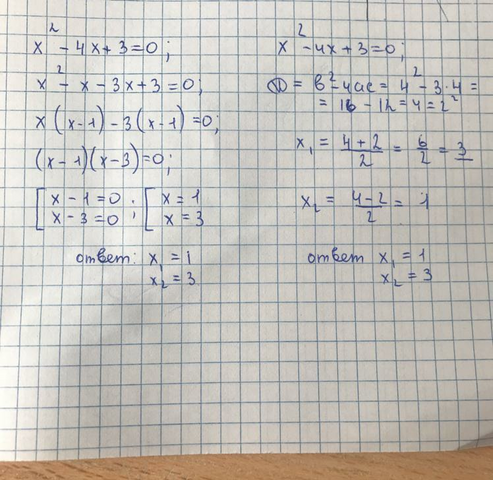 x² - 4x + 3 = 0;
x² - x - 3x + 3 = 0;
x(x-1) - 3(x-1) = 0;
(x-1)(x-3) = 0;
[ x - 1 = 0 ; [ x = 1
x - 3 = 0 x = 3
ответ: x₁ = 1
x₂ = 3
x² - 4x + 3 = 0;
D = b² - 4ac = 4² - 3·4 =
= 16 - 12 = 4 = 2²
x₁ = (4+2)/2 = 6/2 = 3
x₂ = (4-2)/2 = 1
ответ x₁ = 1
x₂ = 3